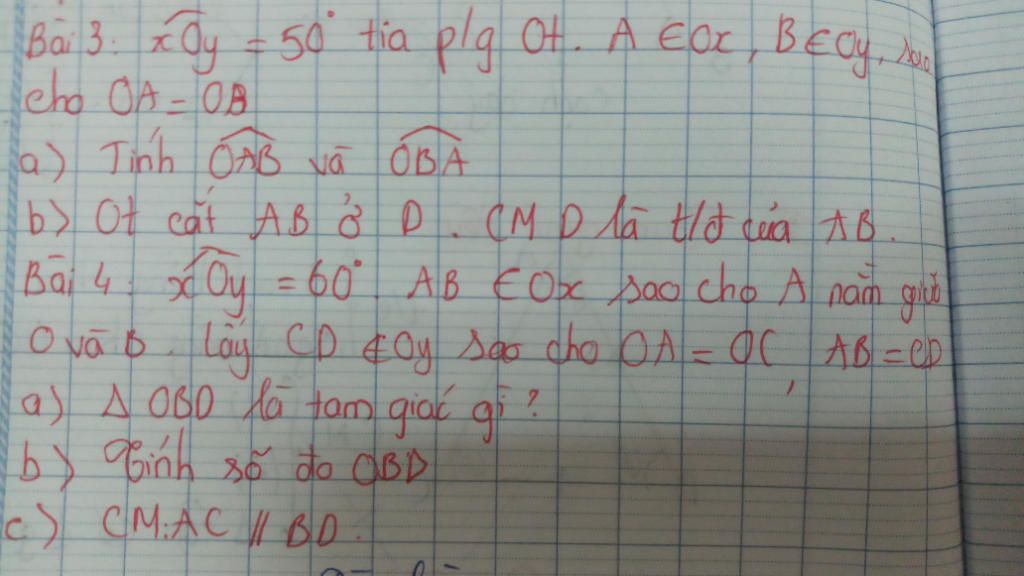 Bài 3: xOy = 50° tia p/g Ot. A ∈ Ox, B ∈ Oy, sao
cho OA = OB
a) Tính OAB và OBA
b) Ot cắt AB ở D. CM D là t/đ của AB.
Bài 4: xOy = 60°. AB ∈ Ox sao cho A nằm giữa
O và B. Lấy CD ∈ Oy sao cho OA = OC, AB = CD
a) Δ OBD là tam giác gì?
b) Tính số đo OBD
c) CM: AC // BD.